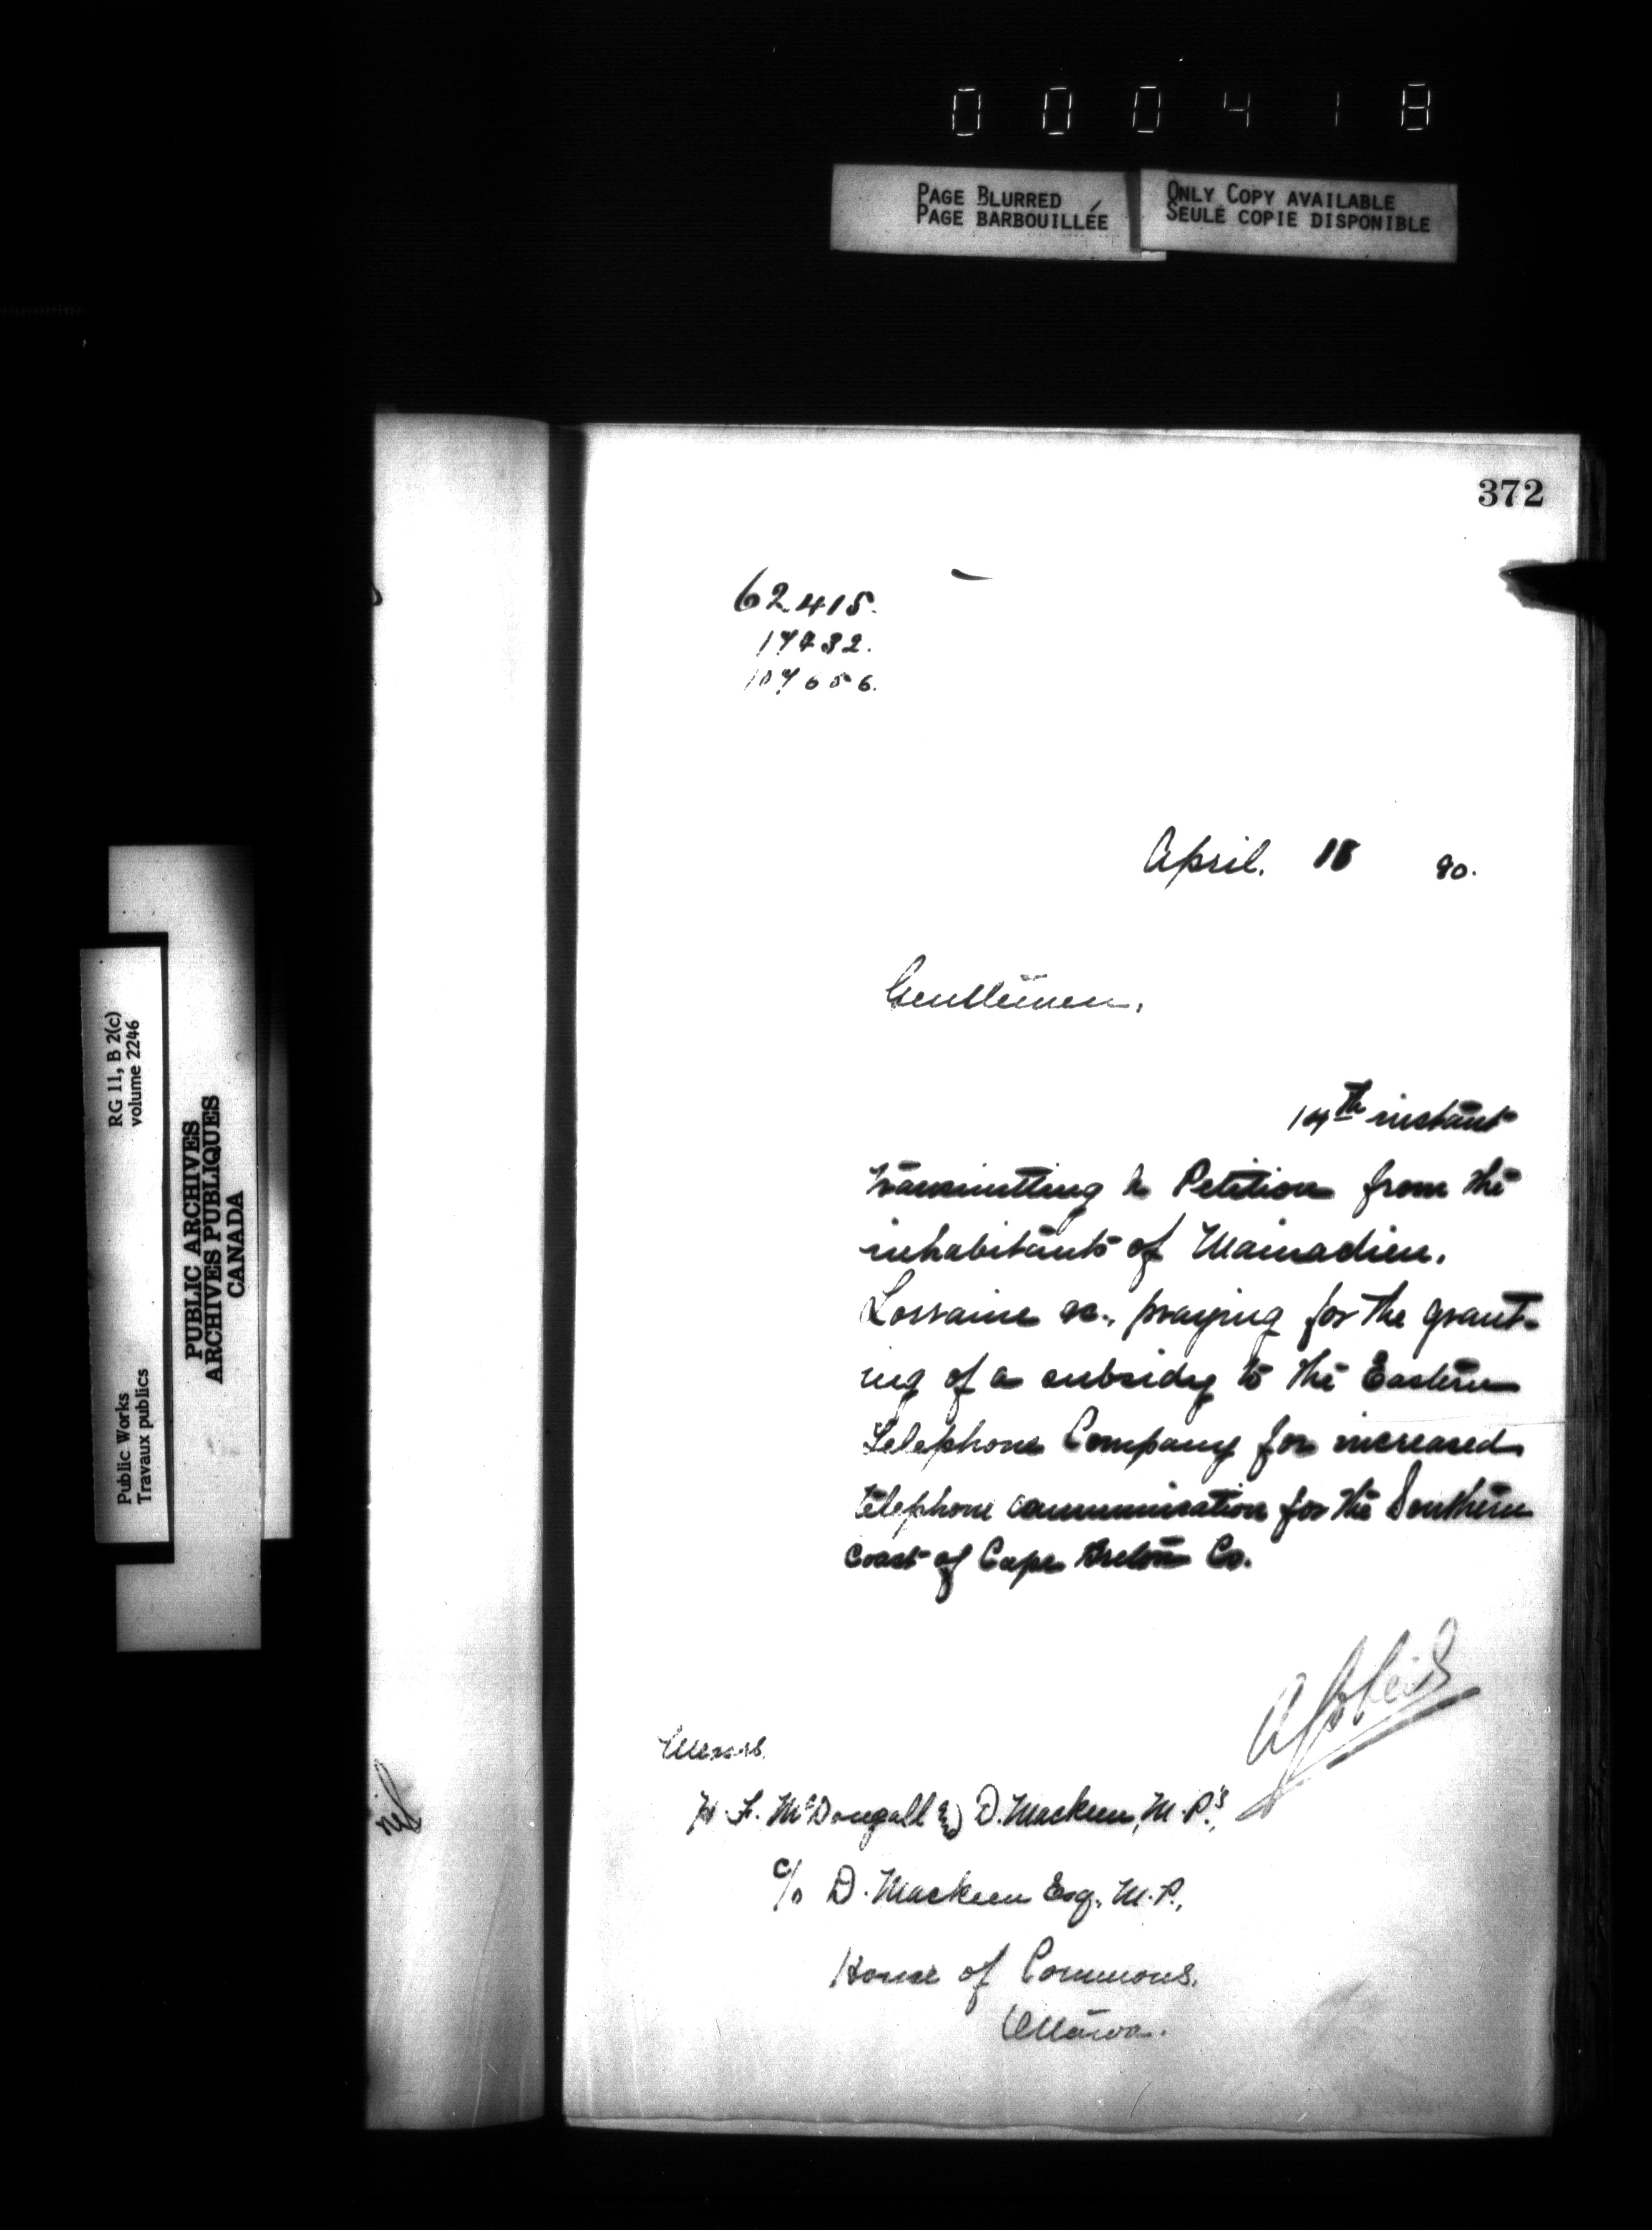 000418
PAGE BLURRED
PAGE BARBOUILLÉE
ONLY COPY AVAILABLE
SEULE COPIE DISPONIBLE
372
62415.
April. 90.
Gentlemen,
14th instant
transmitting a Petition from the
inhabitants of Mainadieu,
Lorraine &c., praying for the grant-
ing of a subsidy to the Eastern
Telephone Company for increased
telephone communication for the Southern
Coast of Cape Breton Co.
Messrs.
H. F. McDougall & D. Mackeen, M.P's,
c/o D. Mackeen Esq. M.P.,
House of Commons,
Ottawa.
RG 11, B 2(c)
volume 2246
Public Works
Travaux publics
PUBLIC ARCHIVES
ARCHIVES PUBLIQUES
CANADA